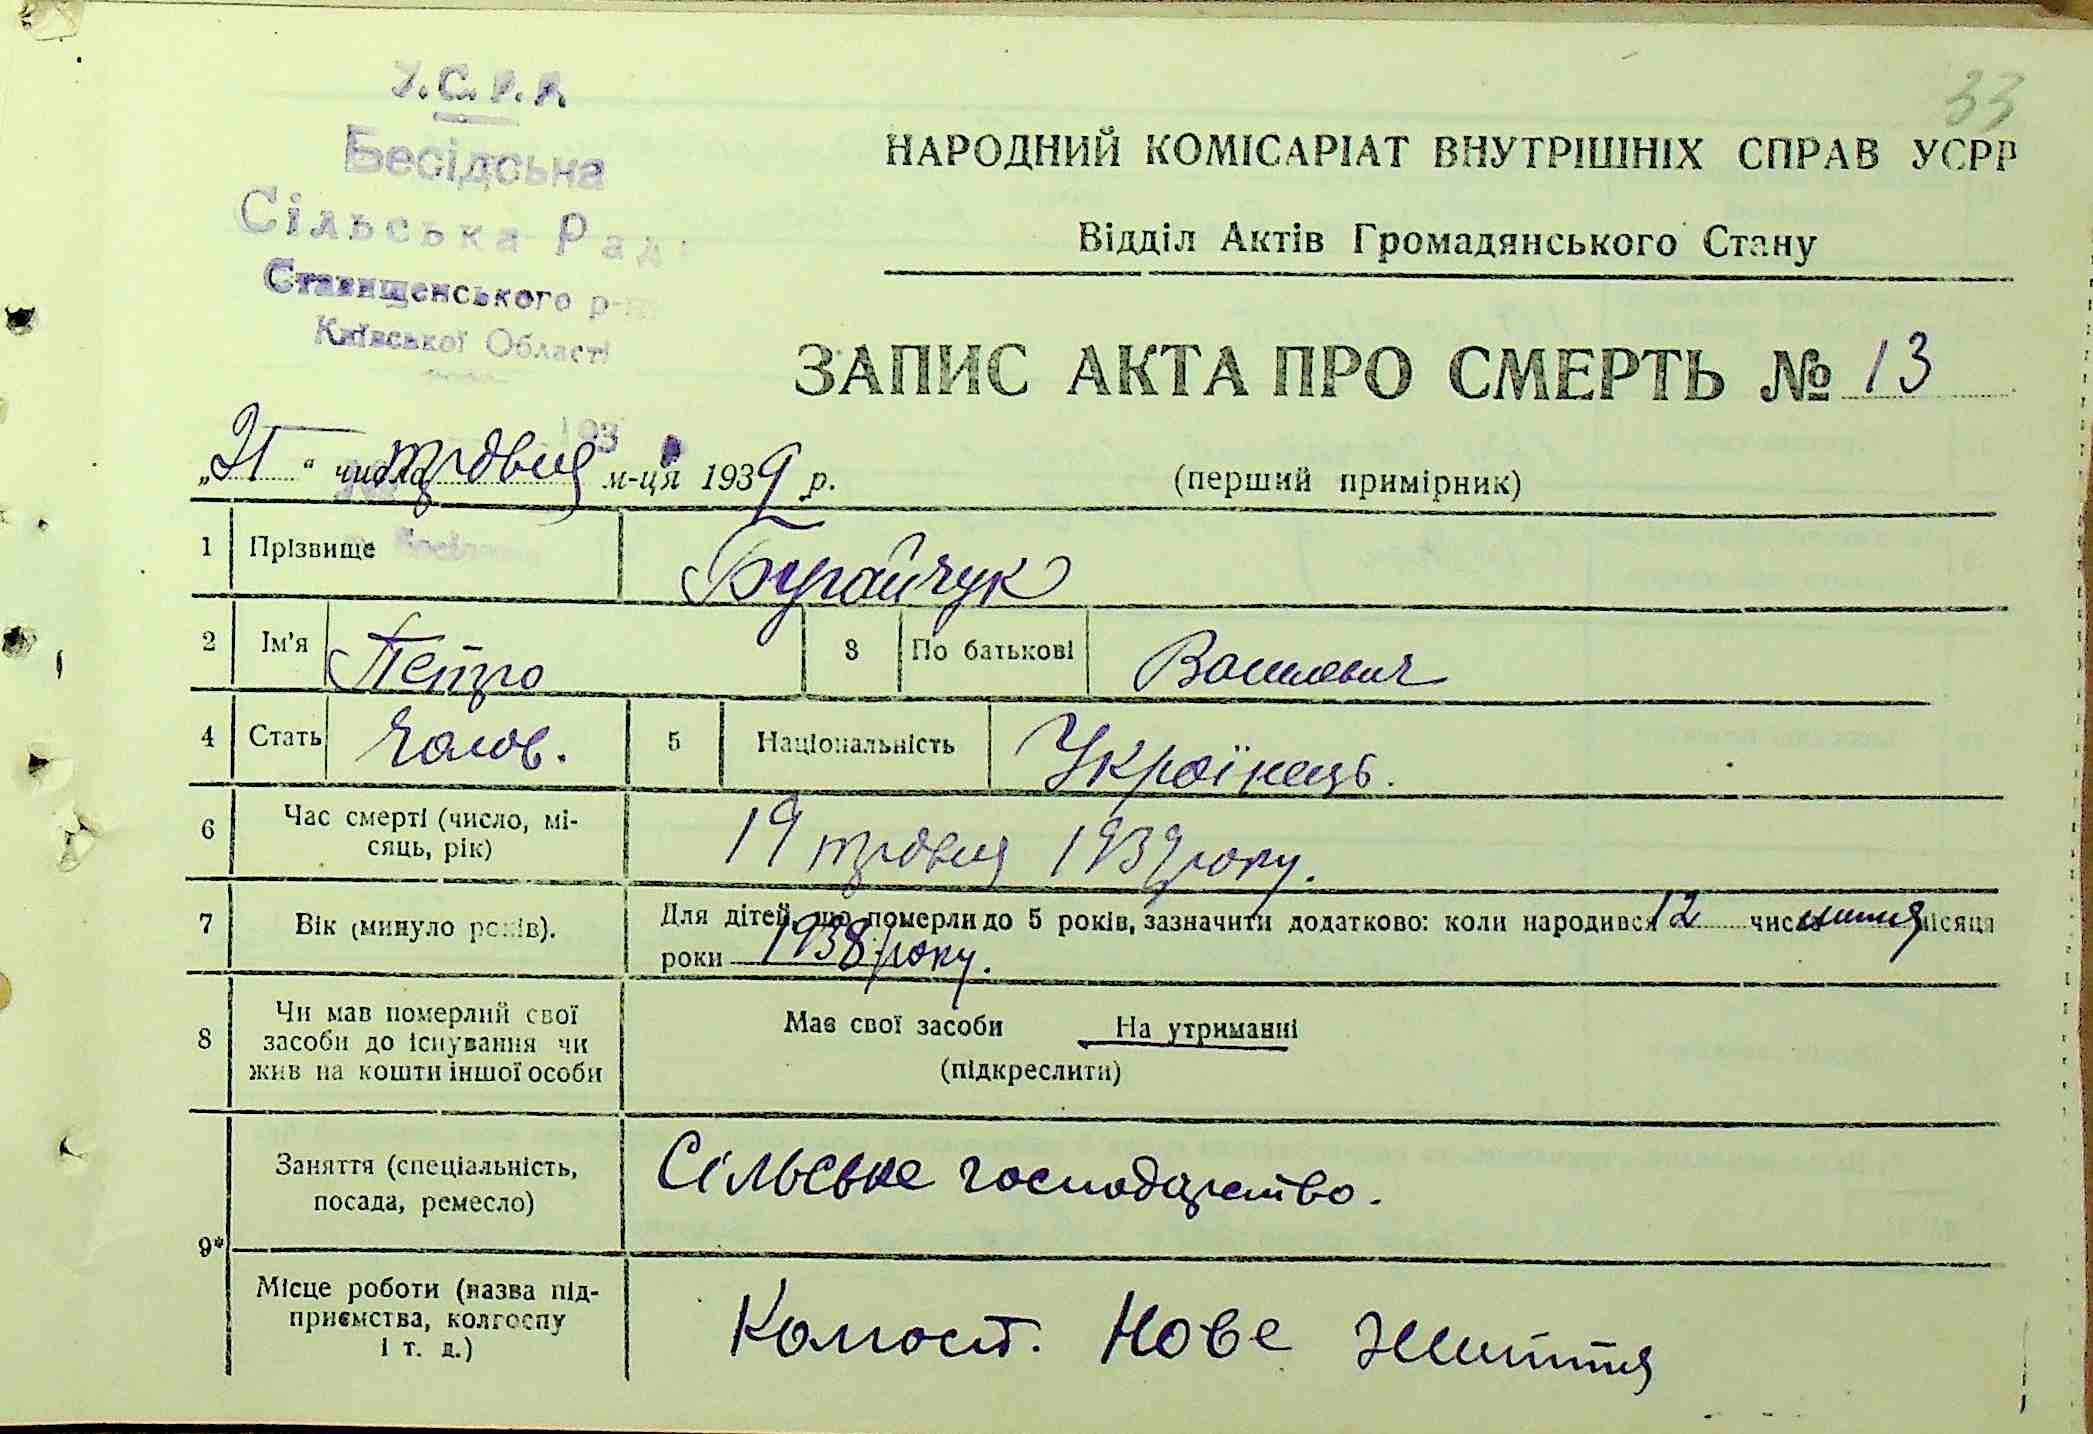 33
У.С.Р.Р.
Бесідська
Сільська Рада
Ставищенського р-ну
Київської Області
НАРОДНИЙ КОМІСАРІАТ ВНУТРІШНІХ СПРАВ УСРР
Відділ Актів Громадянського Стану
ЗАПИС АКТА ПРО СМЕРТЬ № 13
193
„21“ числа травня м-ця 1939 р.
(перший примірник)
1 Прізвище Бугайчук
2 Ім'я Петро 3 По батькові Василевич
4 Стать Чолов. 5 Національність Українець.
6 Час смерті (число, мі-
сяць, рік) 19 травня 1939 року.
7 Вік (минуло років). Для дітей, що померли до 5 років, зазначити додатково: коли народився 12 числа липня місяця
роки 1938 року.
8 Чи мав померлий свої
засоби до існування чи
жив на кошти іншої особи
Має свої засоби На утриманні
(підкреслити)
9* Заняття (спеціальність,
посада, ремесло) Сільське господарство.
Місце роботи (назва під-
приємства, колгоспу
і т. д.) Колгосп. Нове Життя